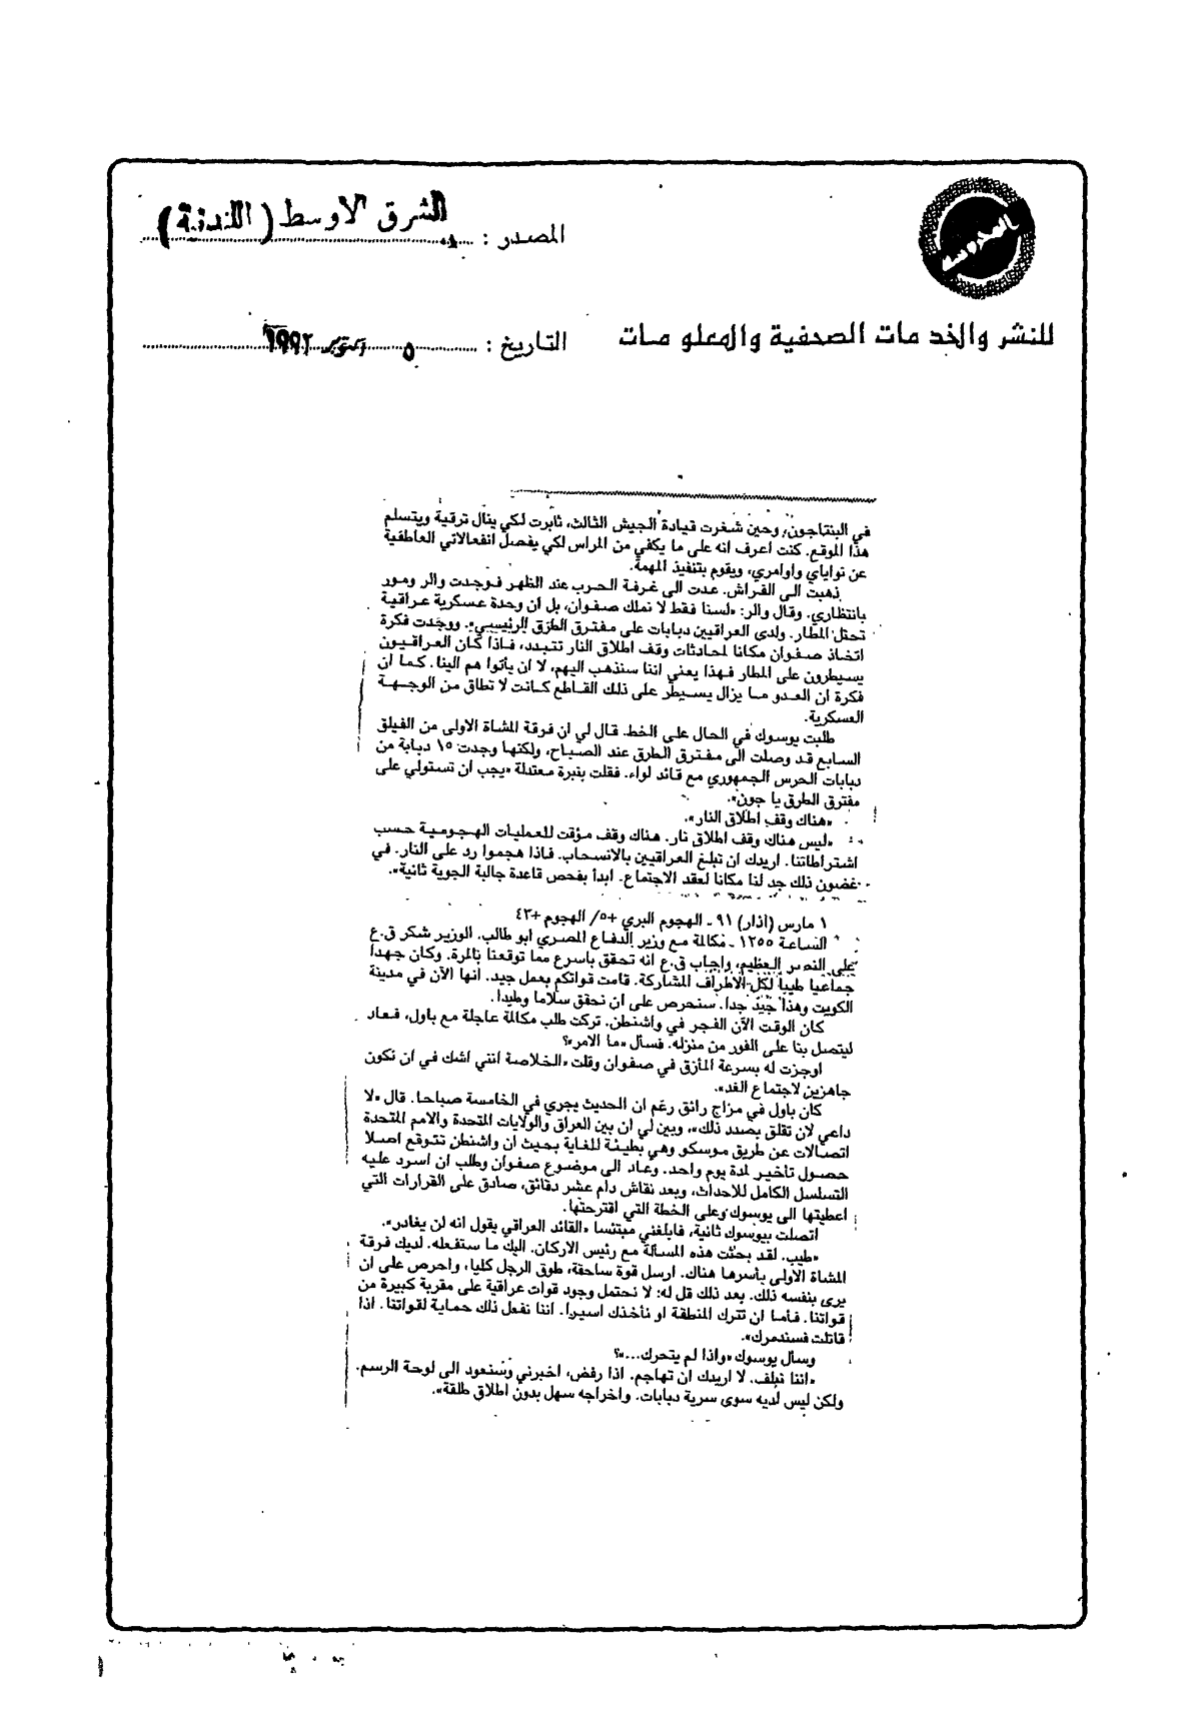 المصدر : الشرق الاوسط (اللندنية)
للنشر والخدمات الصحفية والمعلومات
التاريخ : ٥ اكتوبر ١٩٩٢
في البنتاجون، وحين شغرت قيادة الجيش الثالث، ثابرت لكي ينال ترقية ويتسلم
هذا الموقع. كنت اعرف انه على ما يكفي من المراس لكي يفصل انفعالاتي العاطفية
عن نواياي واوامري، ويقوم بتنفيذ المهمة.
ذهبت الى الفراش. عدت الى غرفة الحرب عند الظهر فوجدت والر ومور
بانتظاري. وقال والر: «لسنا فقط لا نملك صفوان، بل ان وحدة عسكرية عراقية
تحتل المطار. ولدى العراقيين دبابات على مفترق الطرق الرئيسي». ووجدت فكرة
اتخاذ صفوان مكانا لمحادثات وقف اطلاق النار تتبدد، فاذا كان العراقيون
يسيطرون على المطار فهذا يعني اننا سنذهب اليهم، لا ان يأتوا هم الينا. كما ان
فكرة ان العدو ما يزال يسيطر على ذلك القاطع كانت لا تطاق من الوجهة
العسكرية.
طلبت يوسوك في الحال على الخط. قال لي ان فرقة المشاة الاولى من الفيلق
السابع قد وصلت الى مفترق الطرق عند الصباح، ولكنها وجدت ١٥ دبابة من
دبابات الحرس الجمهوري مع قائد لواء. فقلت بنبرة معتدلة «يجب ان تستولي على
مفترق الطرق يا جون».
«هناك وقف اطلاق النار».
«ليس هناك وقف اطلاق نار. هناك وقف مؤقت للعمليات الهجومية حسب
اشتراطاتنا. اريدك ان تبلغ العراقيين بالانسحاب. فاذا هجموا رد على النار. في
غضون ذلك جد لنا مكانا لعقد الاجتماع. ابدأ بفحص قاعدة جالبة الجوية ثانية».
١ مارس (آذار) ٩١ ـ الهجوم البري +٥/ الهجوم +٤٣
الساعة ١٢٥٥ ـ مكالمة مع وزير الدفاع المصري ابو طالب. الوزير شكر ق.ع
على النصر العظيم، واجاب ق.ع انه تحقق باسرع مما توقعنا بالمرة. وكان جهدا
جماعيا طيبا لكل الاطراف المشاركة. قامت قواتكم بعمل جيد. انها الآن في مدينة
الكويت وهذا جيد جدا. سنحرص على ان نحقق سلاما وطيدا.
كان الوقت الآن الفجر في واشنطن. تركت طلب مكالمة عاجلة مع باول، فعاد
ليتصل بنا على الفور من منزله. فسأل «ما الامر»؟
اوجزت له بسرعة المأزق في صفوان وقلت «الخلاصة انني اشك في ان نكون
جاهزين لاجتماع الغد».
كان باول في مزاج رائق رغم ان الحديث يجري في الخامسة صباحا. قال «لا
داعي لان تقلق بصدد ذلك»، وبين لي ان بين العراق والولايات المتحدة والامم المتحدة
اتصالات عن طريق موسكو وهي بطيئة للغاية بحيث ان واشنطن تتوقع اصلا
حصول تأخير لمدة يوم واحد. وعاد الى موضوع صفوان وطلب ان اسرد عليه
التسلسل الكامل للاحداث، وبعد نقاش دام عشر دقائق، صادق على القرارات التي
اعطيتها الى يوسوك وعلى الخطة التي اقترحتها.
اتصلت بيوسوك ثانية، فابلغني مبتئسا «القائد العراقي يقول انه لن يغادر».
«طيب. لقد بحثت هذه المسألة مع رئيس الاركان. اليك ما ستفعله. لديك فرقة
المشاة الاولى بأسرها هناك. ارسل قوة ساحقة، طوق الرجل كليا، واحرص على ان
يرى بنفسه ذلك. بعد ذلك قل له: لا نحتمل وجود قوات عراقية على مقربة كبيرة من
قواتنا. فأما ان تترك المنطقة او نأخذك اسيرا. اننا نفعل ذلك حماية لقواتنا. اذا
قاتلت فسندمرك».
وسأل يوسوك «واذا لم يتحرك...»؟
«اننا نبلف. لا اريدك ان تهاجم. اذا رفض، اخبرني وسنعود الى لوحة الرسم.
ولكن ليس لديه سوى سرية دبابات. واخراجه سهل بدون اطلاق طلقة».